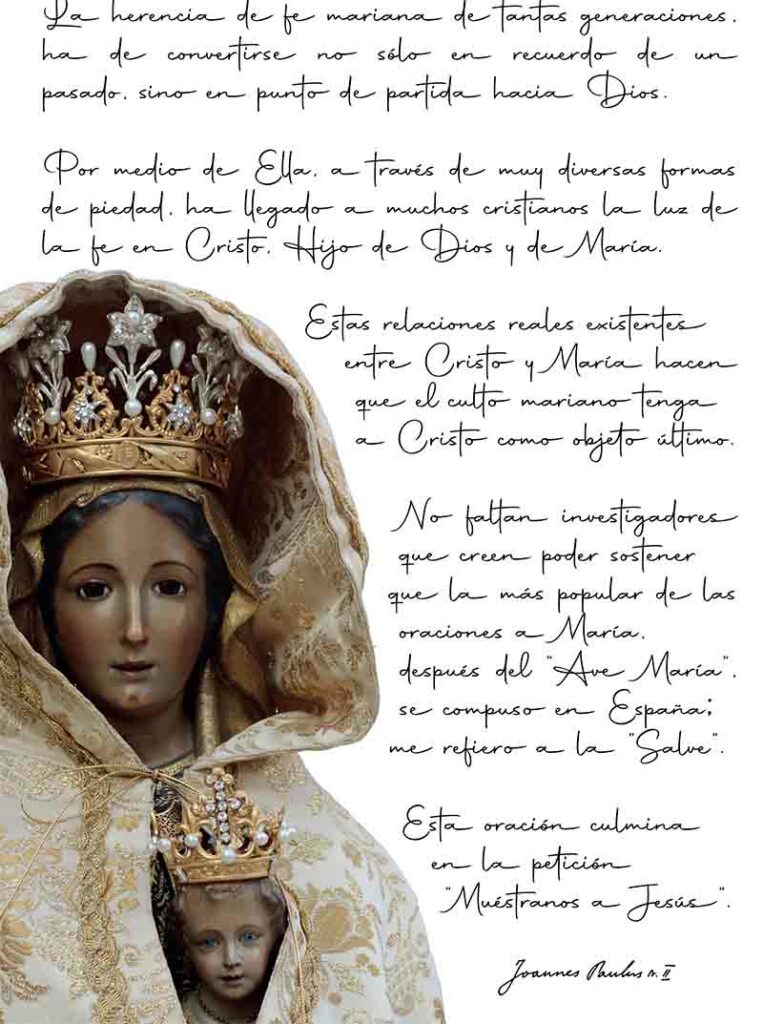 La herencia de fe mariana de tantas generaciones,
ha de convertirse no sólo en recuerdo de un
pasado, sino en punto de partida hacia Dios.
Por medio de Ella, a través de muy diversas formas
de piedad, ha llegado a muchos cristianos la luz de
la fe en Cristo, Hijo de Dios y de María.
Estas relaciones reales existentes
entre Cristo y María hacen
que el culto mariano tenga
a Cristo como objeto último.
No faltan investigadores
que creen poder sostener
que la más popular de las
oraciones a María,
después del "Ave María",
se compuso en España;
me refiero a la "Salve".
Esta oración culmina
en la petición
"Muéstranos a Jesús".
Joannes Paulus n. II